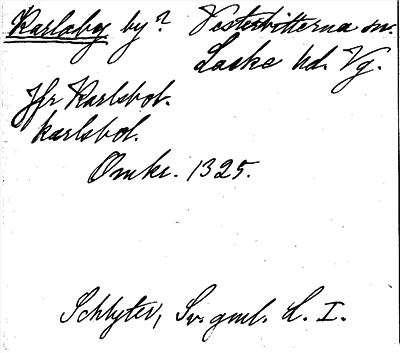 Karlaby by? Vesterbitterna sn.
Laske hd. Vg.
Jfr Karlsbol.
karlsbol.
Omkr. 1325.
Schlyter, Sv. gml. L. I.